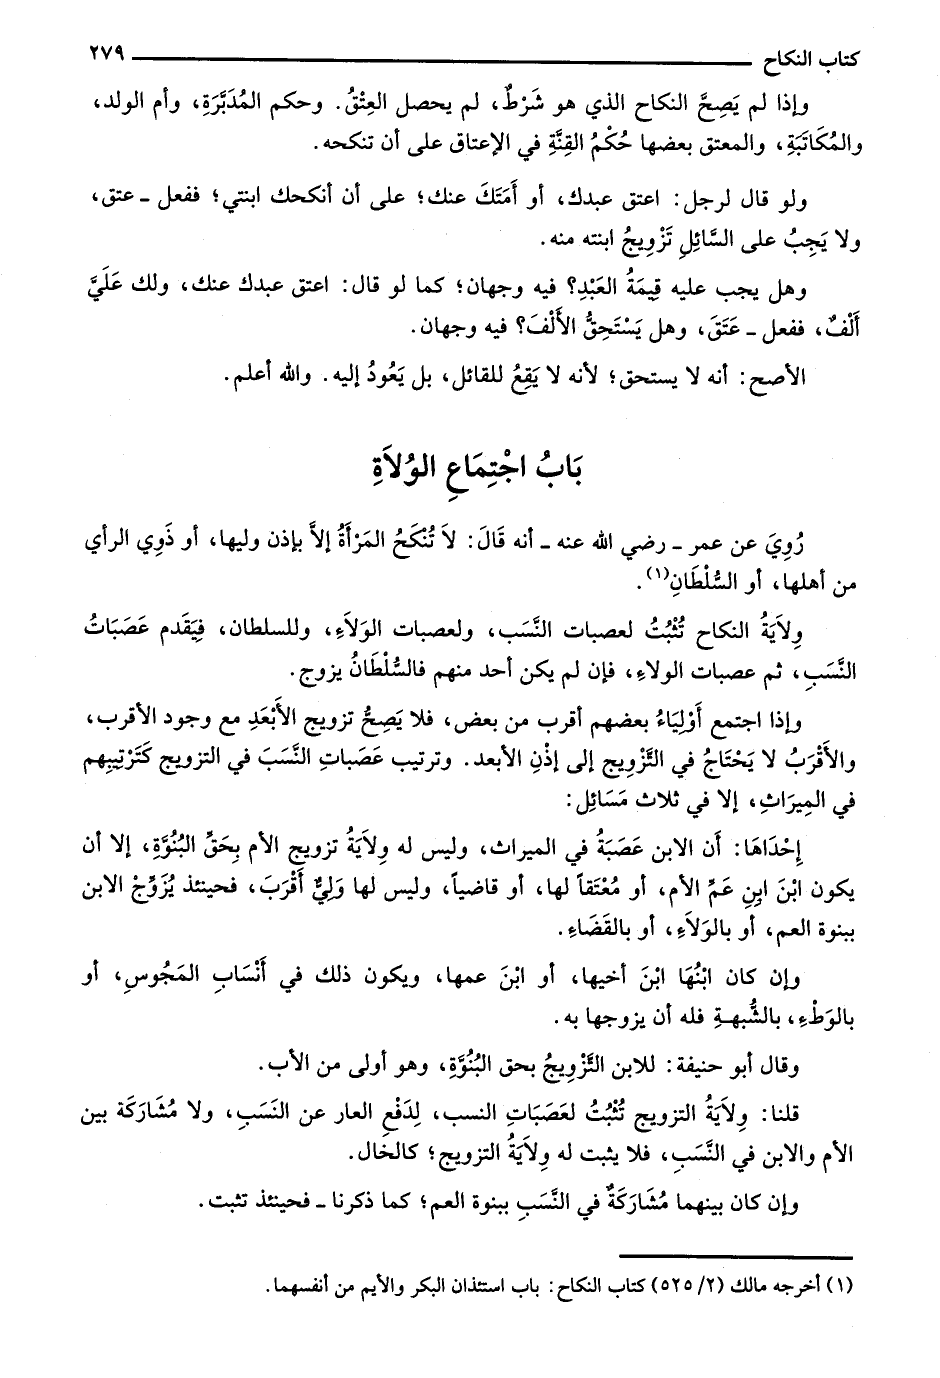 كتاب النكاح ٢٧٩
وإذا لم يَصِحَّ النكاح الذي هو شَرْطٌ، لم يحصل العِتْقُ. وحكم المُدَبَّرَةِ، وأم الولد،
والمُكَاتَبَةِ، والمعتق بعضها حُكْمُ القِنَّةِ في الإعتاق على أن تنكحه.
ولو قال لرجل: اعتق عبدك، أو أَمَتَكَ عنك؛ على أن أنكحك ابنتي؛ ففعل ـ عتق،
ولا يَجِبُ على السَّائِلِ تَزْوِيجُ ابنته منه.
وهل يجب عليه قِيمَةُ العَبْدِ؟ فيه وجهان؛ كما لو قال: اعتق عبدك عنك، ولك عَلَيَّ
أَلْفٌ، ففعل ـ عَتَقَ، وهل يَسْتَحِقُّ الأَلْفَ؟ فيه وجهان.
الأصح: أنه لا يستحق؛ لأنه لا يَقِعُ للقائل، بل يَعُودُ إليه. والله أعلم.
بَابُ اجْتِمَاعِ الوُلاَةِ
رُوِيَ عن عمر ـ رضي الله عنه ـ أنه قَالَ: لاَ تُنْكَحُ المَرْأَةُ إلاَّ بإذن وليها، أو ذَوِي الرأي
من أهلها، أو السُّلْطَانِ(١).
وِلاَيَةُ النكاح تُثْبُتُ لعصبات النَّسَب، ولعصبات الوَلاَءِ، وللسلطان، فيَقَدم عَصَبَاتُ
النَّسَبِ، ثم عصبات الولاءِ، فإن لم يكن أحد منهم فالسُّلْطَانُ يزوج.
وإذا اجتمع أَوْلِيَاءُ بعضهم أقرب من بعض، فلا يَصِحُّ تزويج الأَبْعَدِ مع وجود الأقرب،
والأَقْرَبُ لا يَحْتَاجُ في التَّزْوِيج إلى إذْنِ الأبعد. وترتيب عَصَباتِ النَّسَبَ في التزويج كَتَرْتِيبِهم
في المِيرَاثِ، إلا في ثلاث مَسَائِل:
إِحْدَاهَا: أن الابن عَصَبَةُ في الميراث، وليس له وِلاَيَةُ تزويج الأم بِحَقِّ البُنُوَّةِ، إلا أن
يكون ابْنَ ابِنِ عَمِّ الأم، أو مُعْتَقاً لها، أو قاضياً، وليس لها وَلِيٌّ أَقْرَبَ، فحينئذ يُزَوِّجْ الابن
ببنوة العم، أو بالوَلاَءِ، أو بالقَضَاءِ.
وإن كان ابْنُهَا ابْنَ أخيها، أو ابْنَ عمها، ويكون ذلك في أَنْسَابِ المَجُوسِ، أو
بالوَطْءِ، بالشُّبهـةِ فله أن يزوجها به.
وقال أبو حنيفة: للابن التَّزْوِيجُ بحق البُنُوَّةِ، وهو أولى من الأب.
قلنا: وِلاَيَةُ التزويج تُثْبُتُ لعَصَبَاتِ النسب، لِدَفْعِ العار عن النَسَبِ، ولا مُشَارَكَة بين
الأم والابن في النَّسَبِ، فلا يثبت له وِلاَيَةُ التزويج؛ كالخال.
وإن كان بينهما مُشَارَكَةٌ في النَّسَبِ ببنوة العم؛ كما ذكرنا ـ فحينئذ تثبت.
(١) أخرجه مالك (٢/ ٥٢٥) كتاب النكاح: باب استئذان البكر والأيم من أنفسهما.